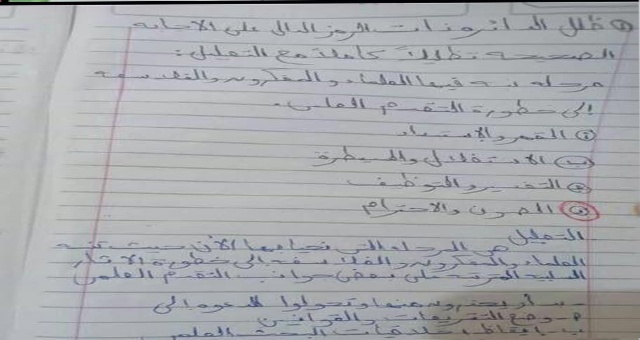 ظلل الدائرة ذات الرمز الدال على الاجابة
الصحيحة تظليلاً كاملاً مع التعليل:
مرحلة نبه فيها العلماء والمفكرون والفلاسفة
إلى خطورة التقدم العلمي.
القهر والاستبداد
ب الاستغلال والسيطرة
ج التفسير والتوظيف
د الصون والاحترام
التعليل هي المرحلة التي نحيا بها الآن حيث تنبه
العلماء والمفكرون والفلاسفة إلى خطورة الآثار
السلبية المترتبة على بعض جوانب التقدم العلمي
الدعوة إلى
٢- وضع التشريعات والقوانين
أخلاقيات البحث العلمي